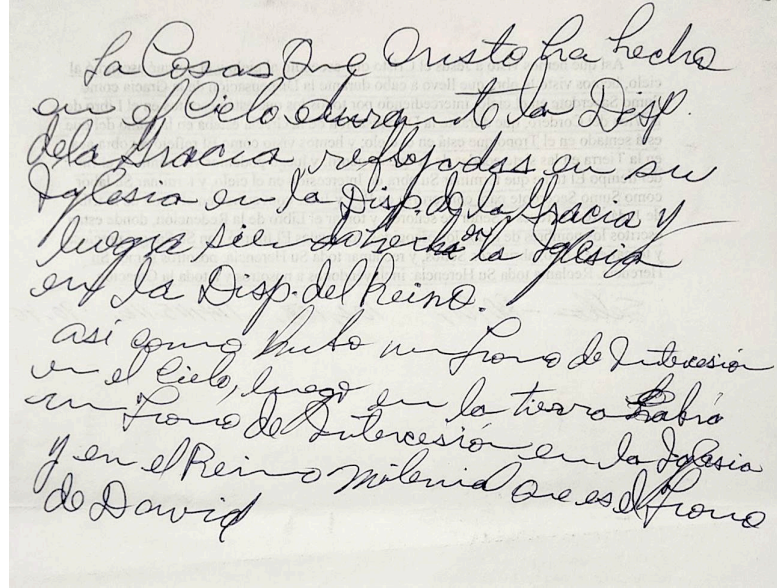 La Cosas Que Cristo ha hecho
en el Cielo durante la Disp.
de la Gracia, reflejadas en su
Iglesia en la Disp. de la Gracia y
luego siendo hecho en la Iglesia
en la Disp. del Reino.
así como hubo un Trono de Intercesión
en el Cielo, luego en la tierra habrá
un Trono de Intercesión en la Iglesia
y en el Reino Milenial que es el Trono
de David